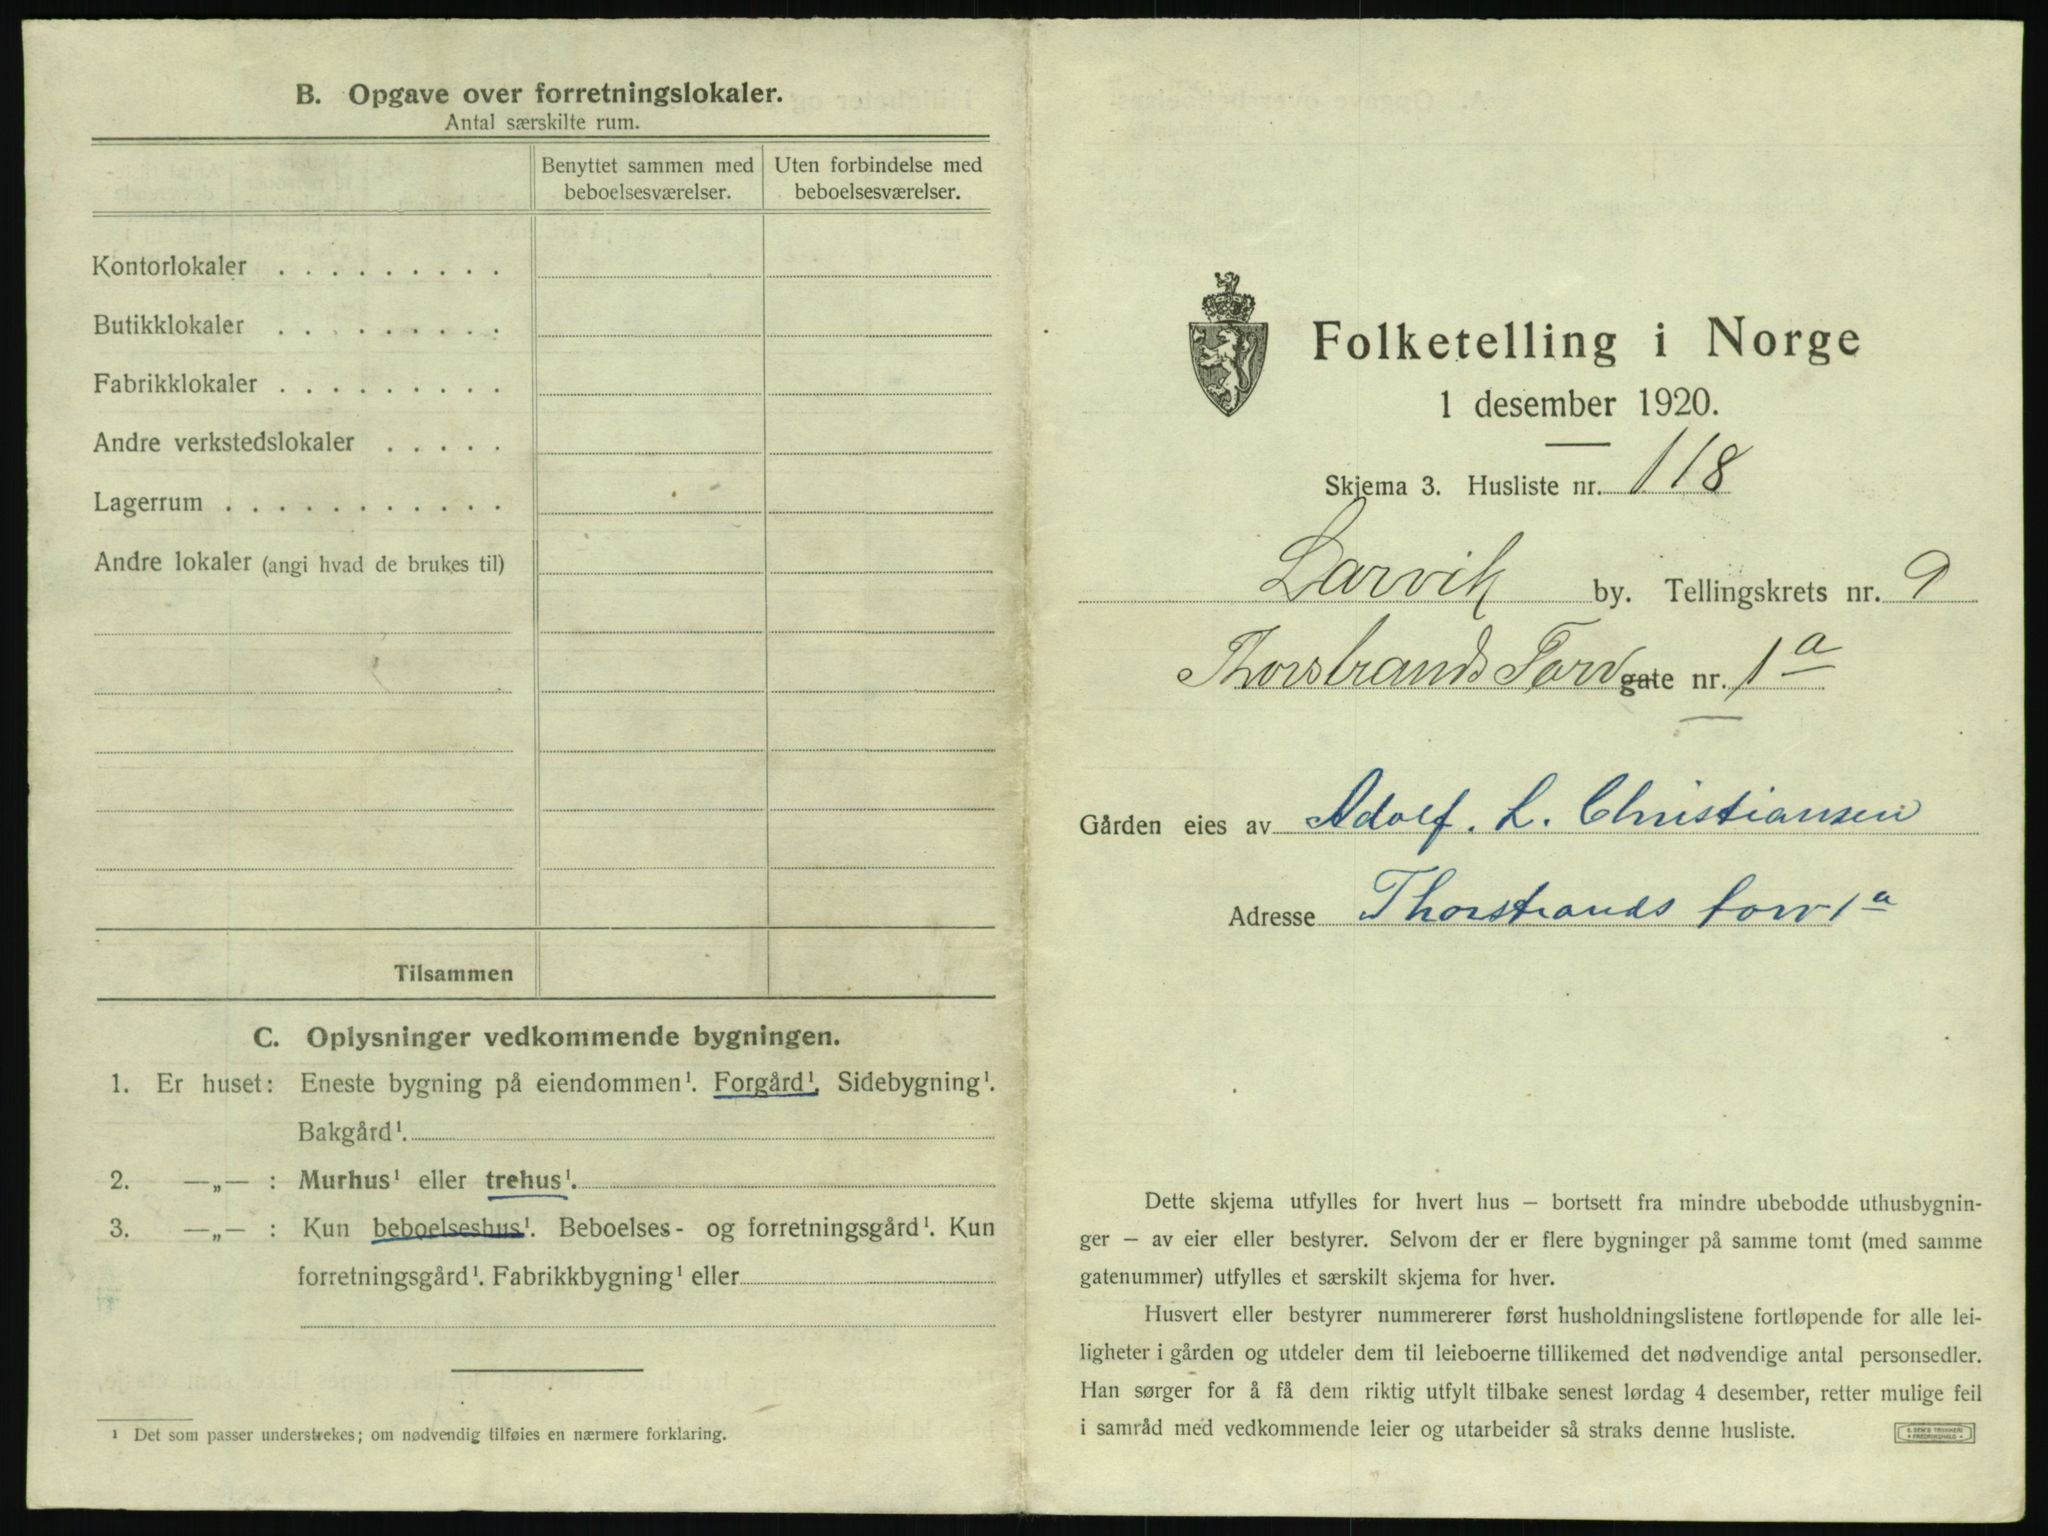 B. Opgave over forretningslokaler.
Antal særskilte rum.
Benyttet sammen med beboelsesværelser.
Uten forbindelse med beboelsesværelser.
Kontorlokaler . . . . . . . . .
Butikklokaler . . . . . . . . .
Fabrikklokaler . . . . . . . . .
Andre verkstedslokaler . . . . .
Lagerrum . . . . . . . . . . .
Andre lokaler (angi hvad de brukes til)
Tilsammen
C. Oplysninger vedkommende bygningen.
1. Er huset: Eneste bygning på eiendommen¹. Forgård¹. Sidebygning¹.
Bakgård¹.
2. —„— : Murhus¹ eller trehus¹.
3. —„— : Kun beboelseshus¹. Beboelses- og forretningsgård¹. Kun
forretningsgård¹. Fabrikkbygning¹ eller
¹ Det som passer understrekes; om nødvendig tilføies en nærmere forklaring.
Folketelling i Norge
1 desember 1920.
Skjema 3. Husliste nr. 118
Larvik by. Tellingskrets nr. 9
Thorstrands Torv gate nr. 1a
Gården eies av Adolf. L. Christiansen
Adresse Thorstrands torv 1a
Dette skjema utfylles for hvert hus — bortsett fra mindre ubebodde uthusbygnin-
ger — av eier eller bestyrer. Selvom der er flere bygninger på samme tomt (med samme
gatenummer) utfylles et særskilt skjema for hver.
Husvert eller bestyrer nummererer først husholdningslistene fortløpende for alle lei-
ligheter i gården og utdeler dem til leieboerne tillikemed det nødvendige antal personsedler.
Han sørger for å få dem riktig utfylt tilbake senest lørdag 4 desember, retter mulige feil
i samråd med vedkommende leier og utarbeider så straks denne husliste.